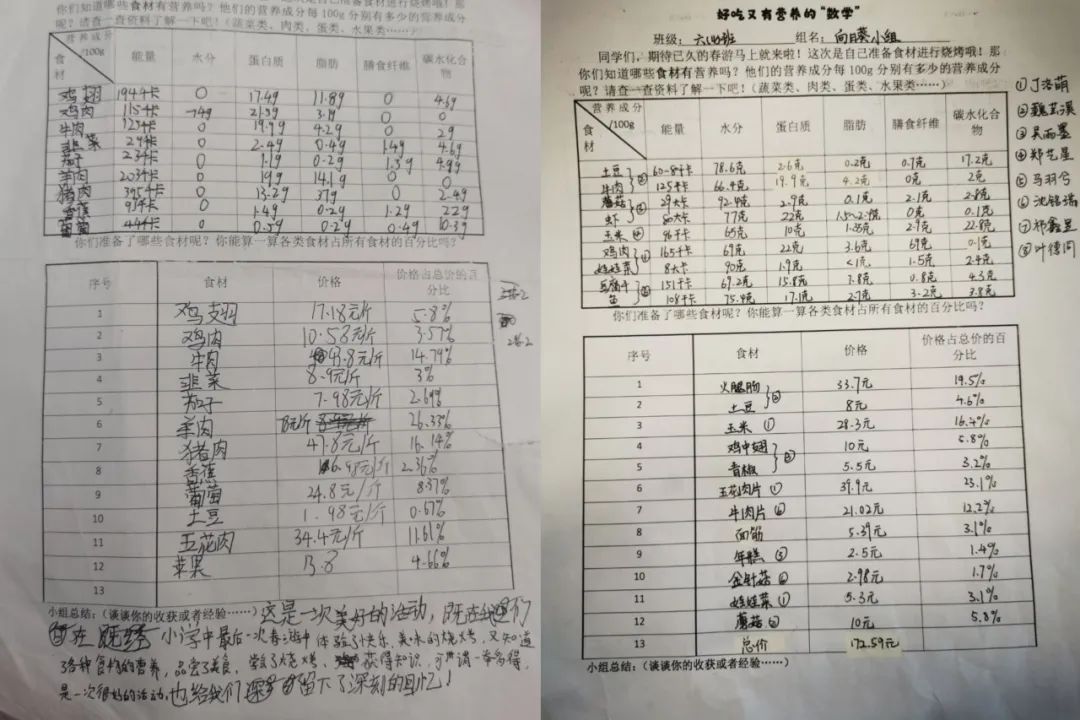 你们知道哪些食材有营养吗？他们的营养成分每100g分别有多少的营养成分
呢？请查一查资料了解一下吧！（蔬菜类、肉类、蛋类、水果类……）
营养成分 /100g 食材 能量 水分 蛋白质 脂肪 膳食纤维 碳水化合物
鸡翅 194千卡 0 17.4g 11.8g 0 4.6g
鸡肉 115千卡 0 0
牛肉 125千卡 0 19.9g 4.2g 0 2g
韭菜 29千卡 0 2.4g 0.4g 1.4g 4.6g
茄子 23千卡 0 1.1g 0.2g 1.3g 4.9g
羊肉 203千卡 0 19g 14.1g 0 0
猪肉 395千卡 0 13.2g 37g 0 2.4g
香蕉 93千卡 0 1.4g 0.2g 1.2g 22g
葡萄 44千卡 0 0.5g 0.2g 0.4g 10.3g
你们准备了哪些食材呢？你能算一算各类食材占所有食材的百分比吗？
序号 食材 价格 价格占总价的百分比
1 鸡翅 17.18元/斤 5.8%
2 鸡肉 10.58元/斤 3.57%
3 牛肉 43.8元/斤 14.79%
4 韭菜 8.9元/斤 3%
5 茄子 7.98元/斤 2.69%
6 羊肉 26.33%
7 猪肉 47.8元/斤 16.14%
8 香蕉 6.98元/斤 2.36%
9 葡萄 24.8元/斤 8.37%
10 土豆 1.98元/斤 0.67%
11 五花肉 34.4元/斤 11.61%
12 苹果 13.8 4.66%
13
小组总结：（谈谈你的收获或者经验……）这是一次美好的活动，既在我们
在 小学中最后一次春游中体验了快乐，美味的烧烤，又知道
了各种食物的营养，品尝了美食，尝了烧烤，获得知识，可谓一举多得，
是一次很好的活动，也给我们留下了深刻的回忆！
好吃又有营养的“数学”
班级：六(4)班 组名：向日葵小组
同学们，期待已久的春游马上就来啦！这次是自己准备食材进行烧烤哦！那
你们知道哪些食材有营养吗？他们的营养成分每100g分别有多少的营养成分
呢？请查一查资料了解一下吧！（蔬菜类、肉类、蛋类、水果类……）
营养成分 /100g 食材 能量 水分 蛋白质 脂肪 膳食纤维 碳水化合物
土豆 60-80千卡 78.6克 2.6克 0.2克 0.7克 17.2克
牛肉 125千卡 66.4克 19.9克 4.2克 0克 2克
蘑菇 29大卡 92.4克 2.9克 0.1克 2.1克 2.8克
虾 80大卡 77克 22克 0克 0.1克
玉米 96千卡 65克 10克 2.9克 22.8克
鸡肉 165千卡 69克 22克 3.6克 69克 0.1克
娃娃菜 8大卡 90克 1.9克 <1克 1.5克 2.4克
豆腐干 151千卡 69.2克 15.8克 7.8克 0.8克 4.3克
鱼 108千卡 75.4克 17.1克 2.7克 3.2克 3.8克
你们准备了哪些食材呢？你能算一算各类食材占所有食材的百分比吗？
序号 食材 价格 价格占总价的百分比
1 火腿肠 33.7元 19.5%
2 土豆 8元 4.6%
3 玉米① 28.3元 16.4%
4 鸡中翅 10元 5.8%
5 青椒 5.5元 3.2%
6 五花肉片① 39.9元 23.1%
7 牛肉片 21.02元 12.2%
8 面筋 5.39元 3.1%
9 年糕 2.5元 1.4%
10 金针菇 2.98元 1.7%
11 娃娃菜① 5.3元 3.1%
12 蘑菇 10元 5.8%
13 总价 172.59元
小组总结：（谈谈你的收获或者经验……）
①丁洛萌
②魏芷溪
③吴雨墨
④郑艺星
⑤马羽兮
⑥沈铭瑞
⑦郑鑫昱
⑧叶德同